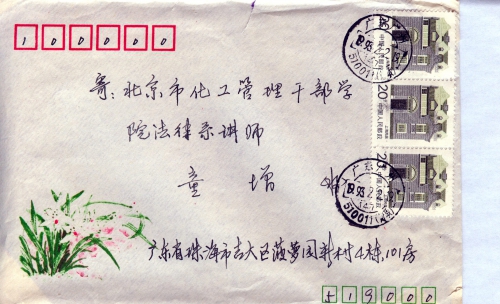 100000
寄：北京市化工管理干部学
院法律系讲师
童 增
广东省珠海市吉大区菠萝园新村4栋101房
519000
20
中国人民邮政
20
中国人民邮政
20
广东